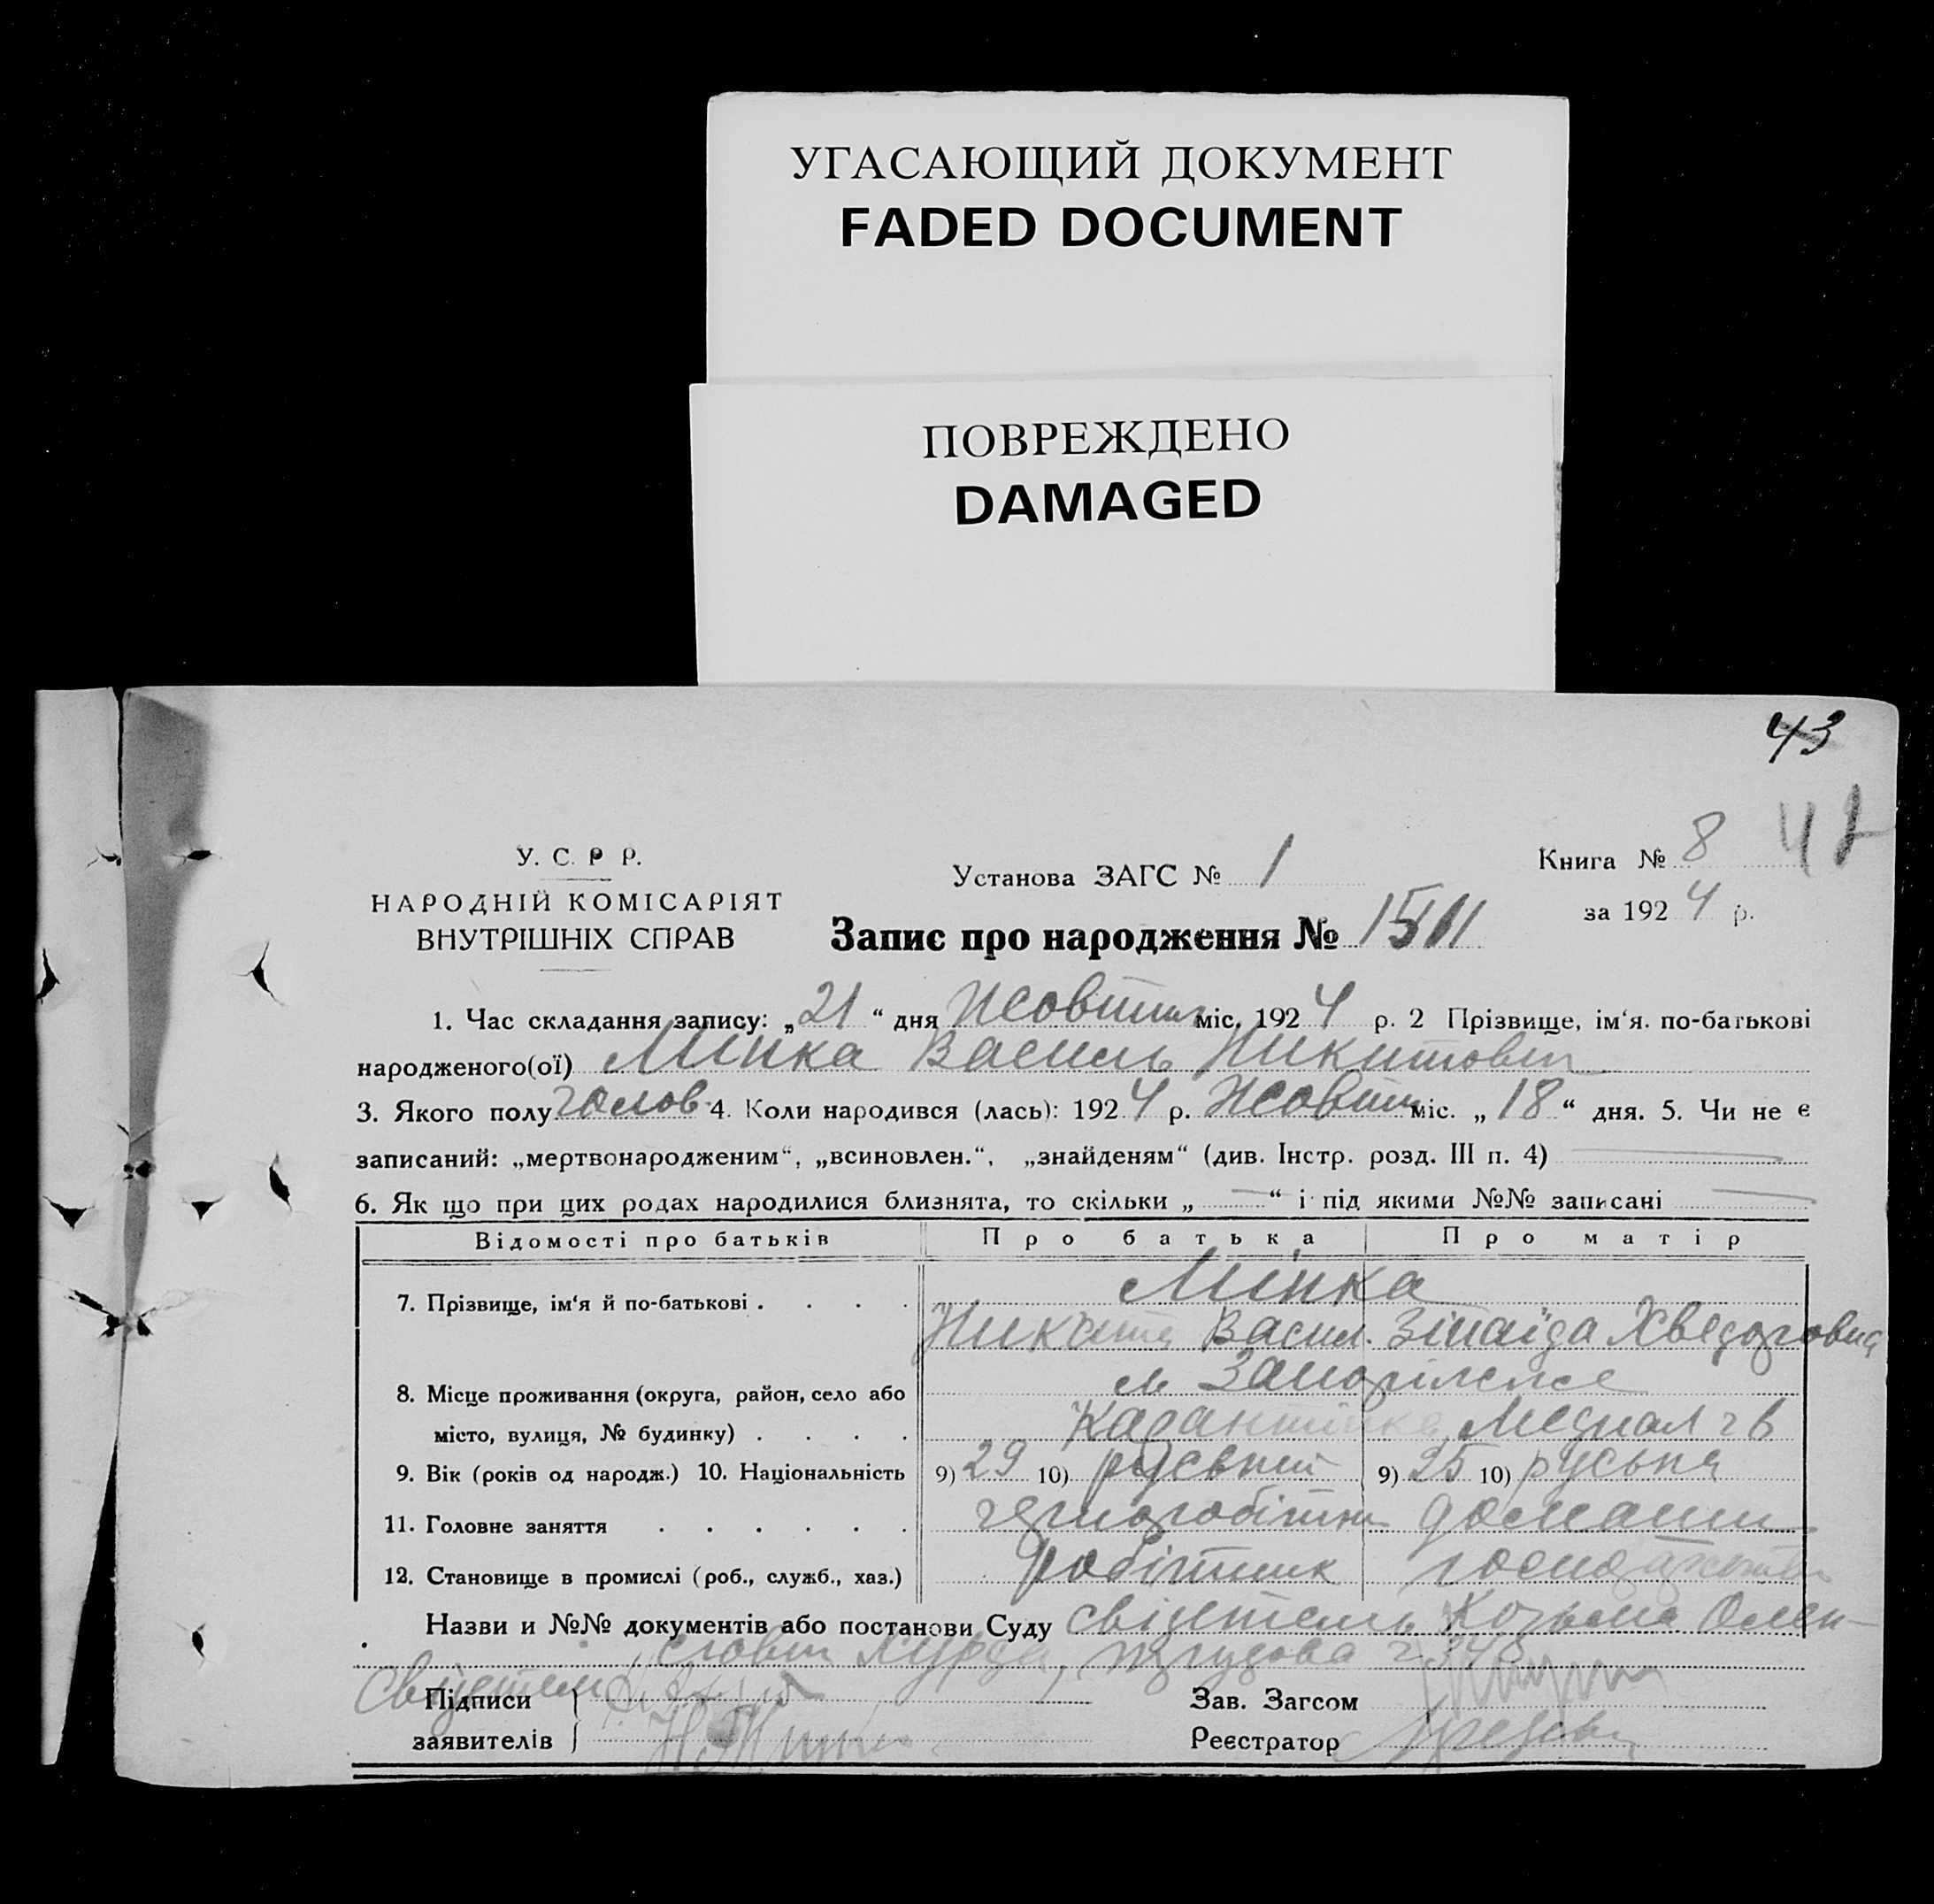 УГАСАЮЩИЙ ДОКУМЕНТ
FADED DOCUMENT
ПОВРЕЖДЕНО
DAMAGED
43
У. С. Р Р.
НАРОДНІЙ КОМІСАРІЯТ
ВНУТРІШНІХ СПРАВ
Установа ЗАГС № 1
Книга № 8
за 1924 р.
Запис про народження № 1511
1. Час складання запису: „21“ дня Жовтня міс. 1924 р. 2 Прізвище, ім‘я. по-батькові
народженого(ої) Мінка Василь Никитович
3. Якого полу чолов. 4. Коли народився (лась): 1924 р. Жовтня міс. „18“ дня. 5. Чи не є
записаний: „мертвонародженим“, „всиновлен.“, „знайденям“ (див. Інстр. розд. III п. 4)
6. Як що при цих родах народилися близнята, то скільки „ — “ і під якими №№ записані
Відомості про батьків Про батька Про матір
7. Прізвище, ім‘я й по-батькові . . . . Мінка
Никита Васил. Зінаїда Хведоровна
8. Місце проживання (округа, район, село або м Запоріжже
місто, вулиця, № будинку) . . . .
9. Вік (років од народж.) 10. Національність 9) 29 10) руський 9) 25 10) руська
11. Головне заняття . . . . . . чорноробітник домашнє
12. Становище в промислі (роб., служб., хаз.) робітник господарство
Назви и №№ документів або постанови Суду свідетель Козьма Олек-
Свідетель
Підписи
заявителів
Зав. Загсом
Реєстратор